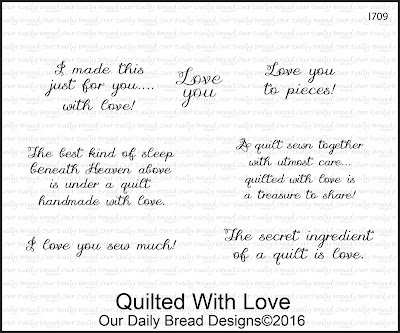 I709
I made this
just for you....
with love!
Love
you
Love you
to pieces!
The best kind of sleep
beneath Heaven above
is under a quilt
handmade with love.
A quilt sewn together
with utmost care...
quilted with love is
a treasure to share!
I love you sew much!
The secret ingredient
of a quilt is love.
Quilted With Love
Our Daily Bread Designs©2016